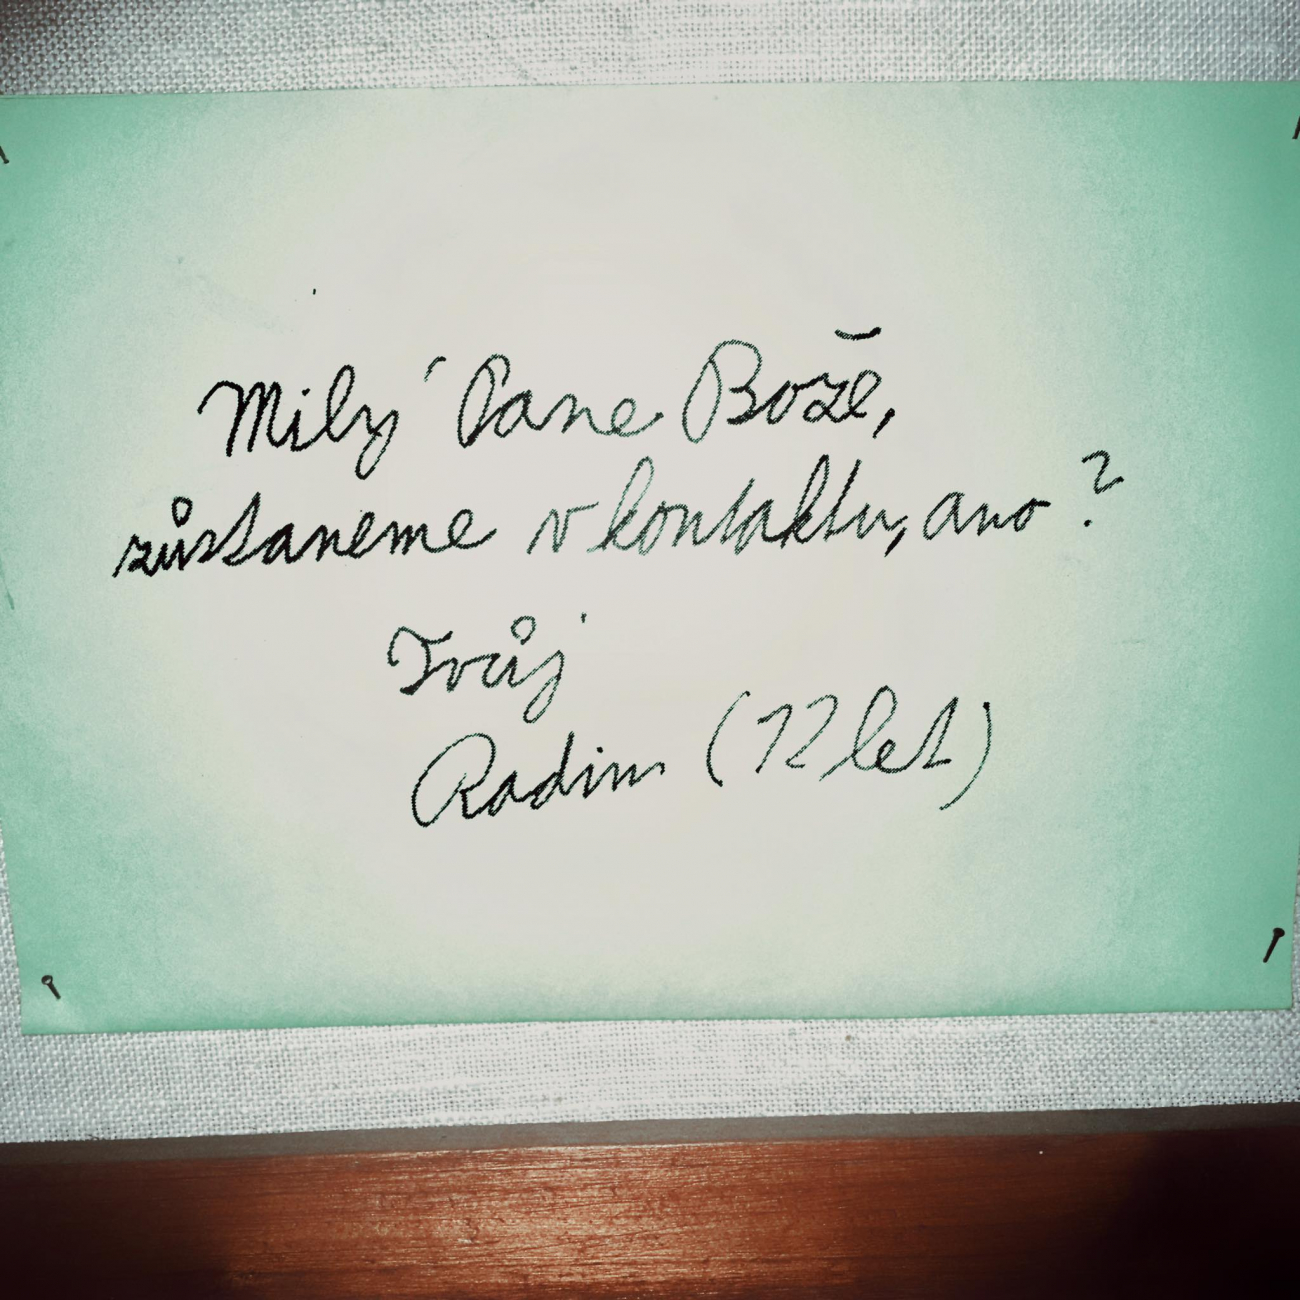 Milý Pane Bože,
zůstaneme v kontaktu, ano?
Tvůj
Radim (12 let)